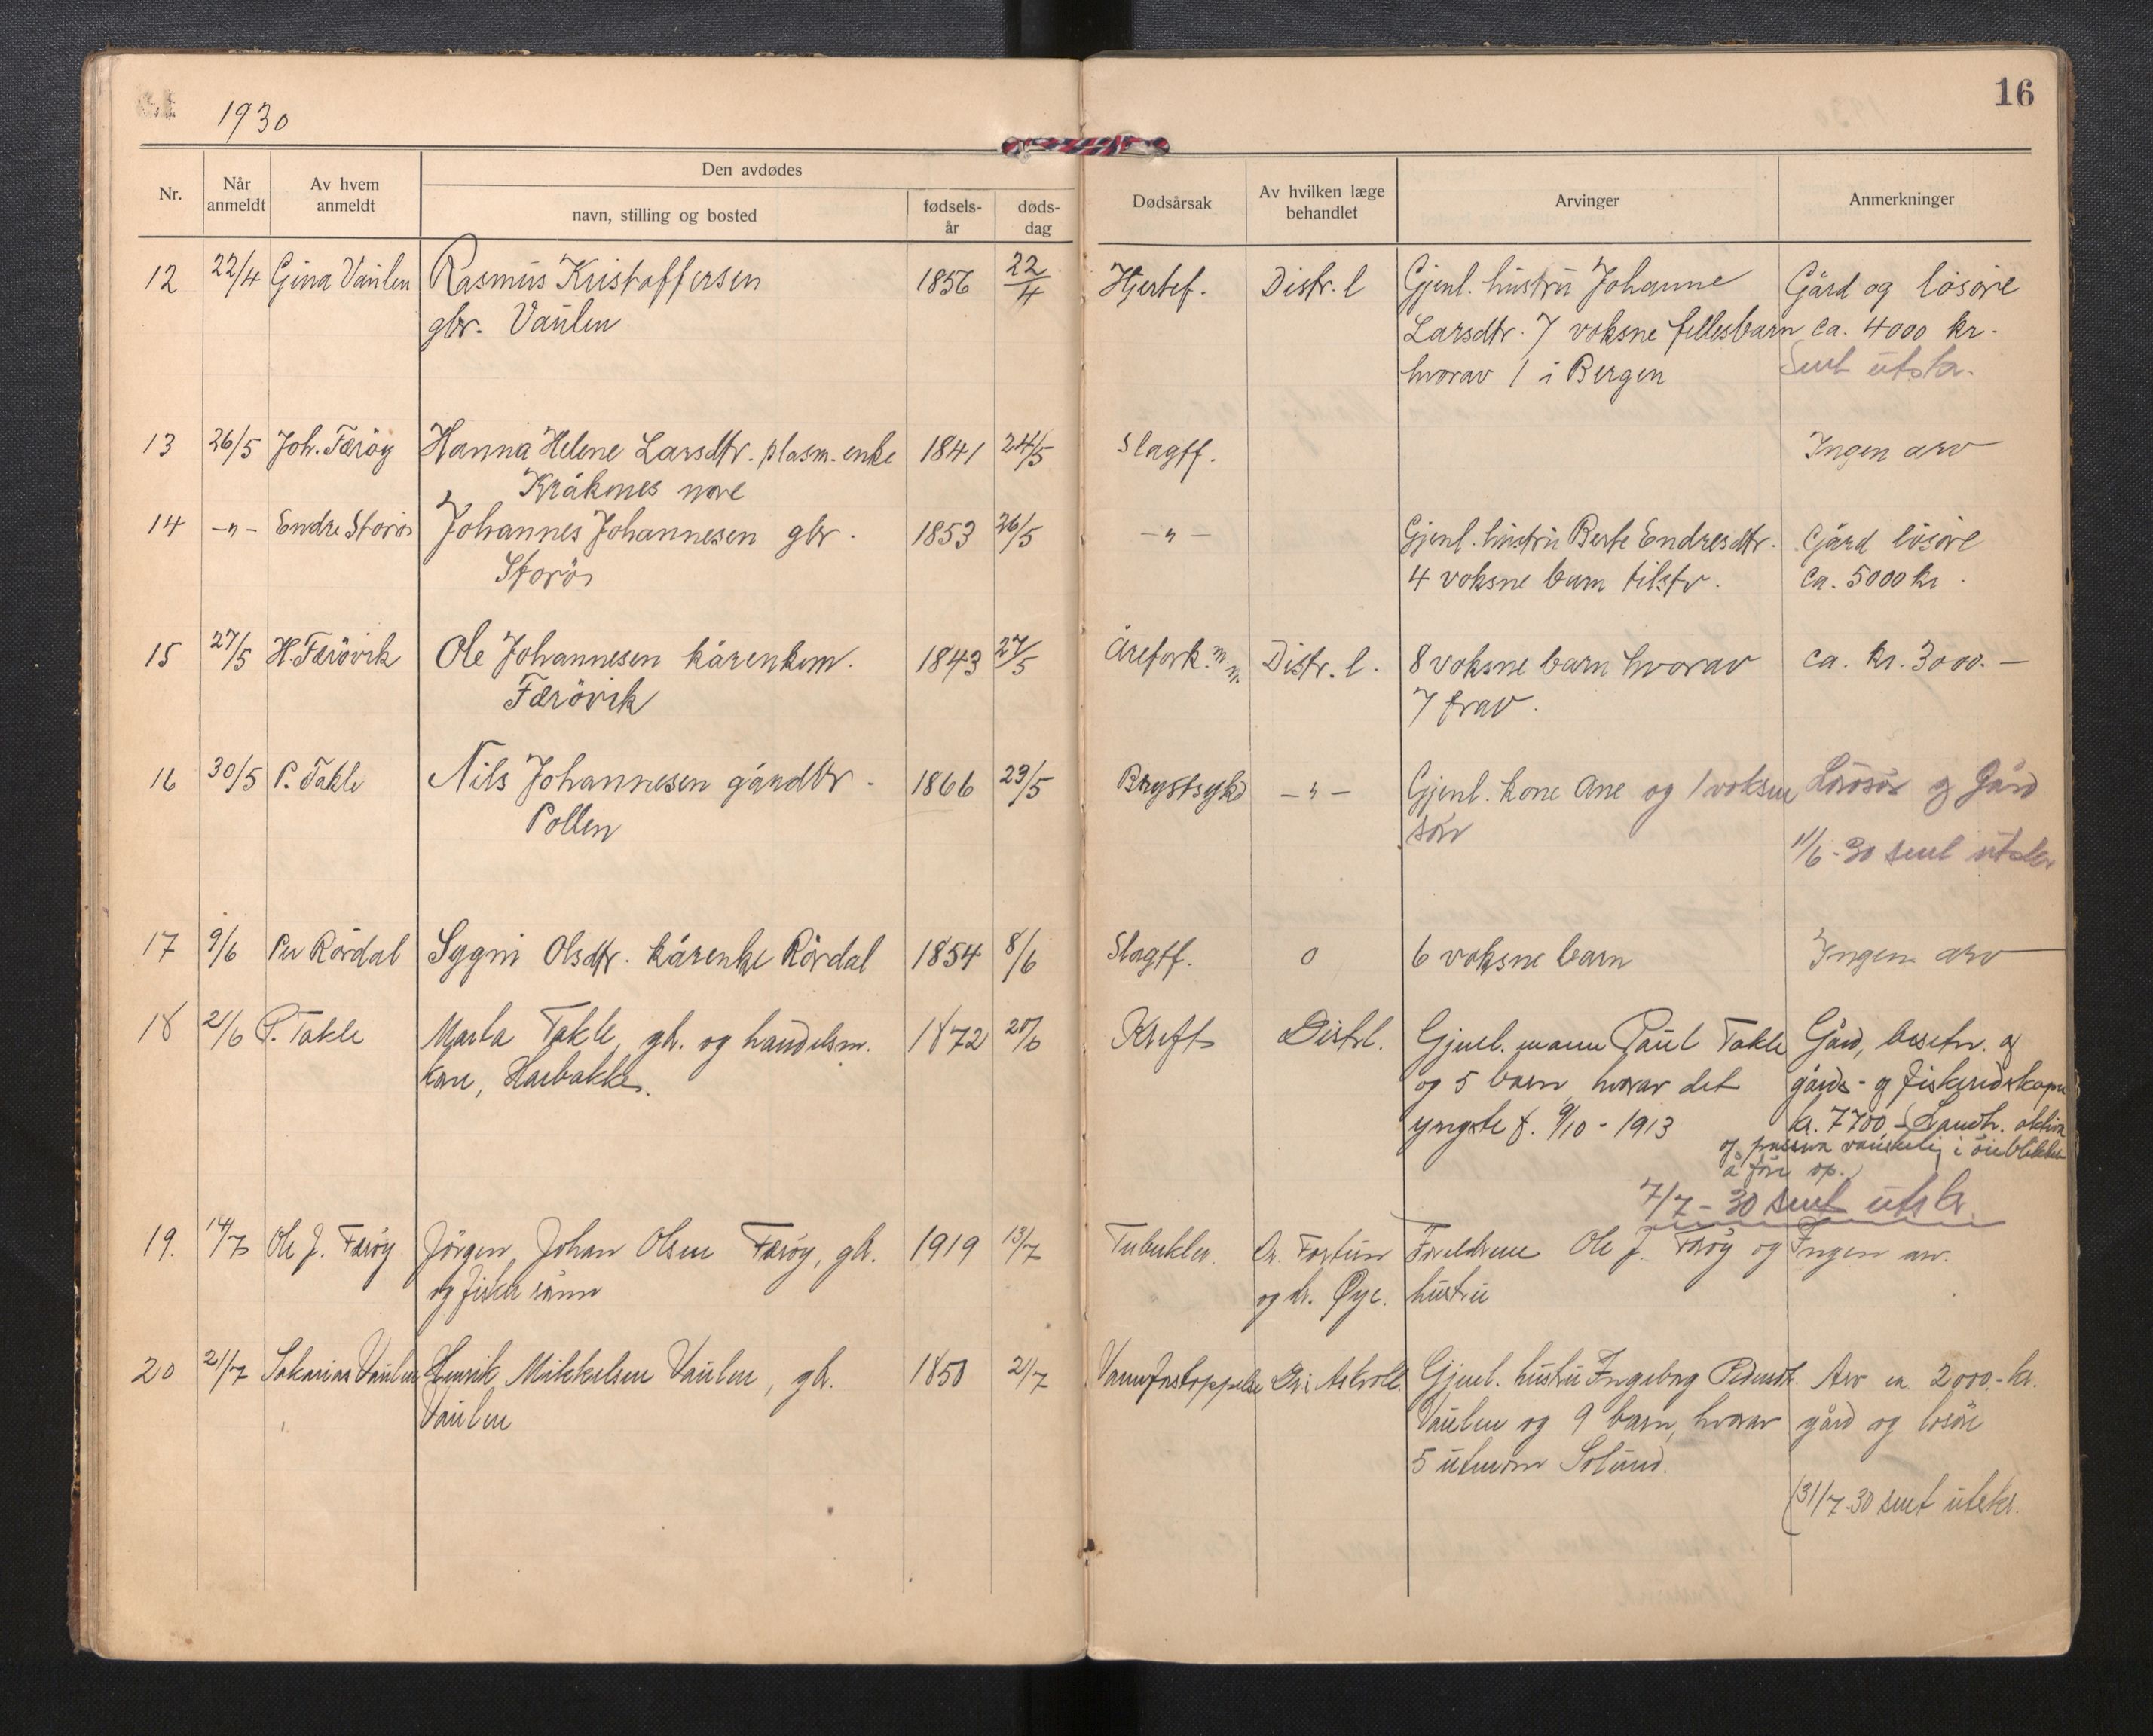 1930
16
Nr.
Når anmeldt
Av hvem anmeldt
Den avdødes
navn, stilling og bosted
fødsels-år
døds-dag
Dødsårsak
Av hvilken læge behandlet
Arvinger
Anmerkninger
12 22/4 Gina Vaulen Rasmus Kristoffersen 1856 22/4 Hjertef. Distr. l Gjenl. hustru Johanne Gård og løsøre
gbr. Vaulen Larsdtr. 7 voksne fellesbarn ca. 4000 kr.
hvorav 1 i Bergen Sml utskr.
13 26/5 Joh. Færøy Hanna Helene Larsdtr. plasm. enke 1841 24/5 Slagtf. Ingen arv
Kråkenes
14 -"- Endre Storøs Johannes Johannesen gbr. 1853 26/5 -"- Gjenl. hustru Berte Endresdtr. Gård løsøre
Storøs 4 voksne barn tilstr. ca. 5000 kr.
15 27/5 H. Færøvik Ole Johannesen kårenkem. 1843 27/5 Årefork. m.m. Distr. l. 8 voksne barn hvorav ca. kr. 3000.—
Færøvik 7 frav.
16 30/5 P. Takle Nils Johannesen gårdbr. 1866 29/5 Brystsykd -"- Gjenl. kone Ane og 1 voksen Løsøre og Gård
Pollen søn
11/6-30 sml utskr
17 9/6 Per Rørdal Sygni Olsdtr. kårenke Rørdal 1854 8/6 Slagtf. o 6 voksne barn Ingen arv
18 21/6 P. Takle Marta Takle, gb. og handelsm. 1872 20/6 Kreft Distrl. Gjenl. mann Paul Takle Gård, besetn. og
kone, Harbakke. og 5 barn, hvorav det gårds- og fiskeredskaper
yngste f. 9/10-1913 kr. 7700 - (Landh. aktiva
og passiva vanskelig i øieblikket
å føre op.)
7/7-30 sml utskr.
19. 14/7 Ole J. Færøy Jörgen Johan Olsen Færøy, gb. 1919 13/7 Tuberkler. Dr. Fortun Foreldrene Ole J. Færøy og Ingen arv.
og fisker sønn og dr. Øye. hustru
20 21/7 Sakarias Vaulen Henrik Mikkelsen Vaulen, gb. 1850 21/7 Vannforstoppelse Dr. i Askvoll. Gjenl. hustru Ingeborg Pedersdtr. Arv ca. 2000.- kr.
Vaulen Vaulen og 9 barn, hvorav gård og løsøre
5 utenom Solund.
(31/7-30 sml utskr.